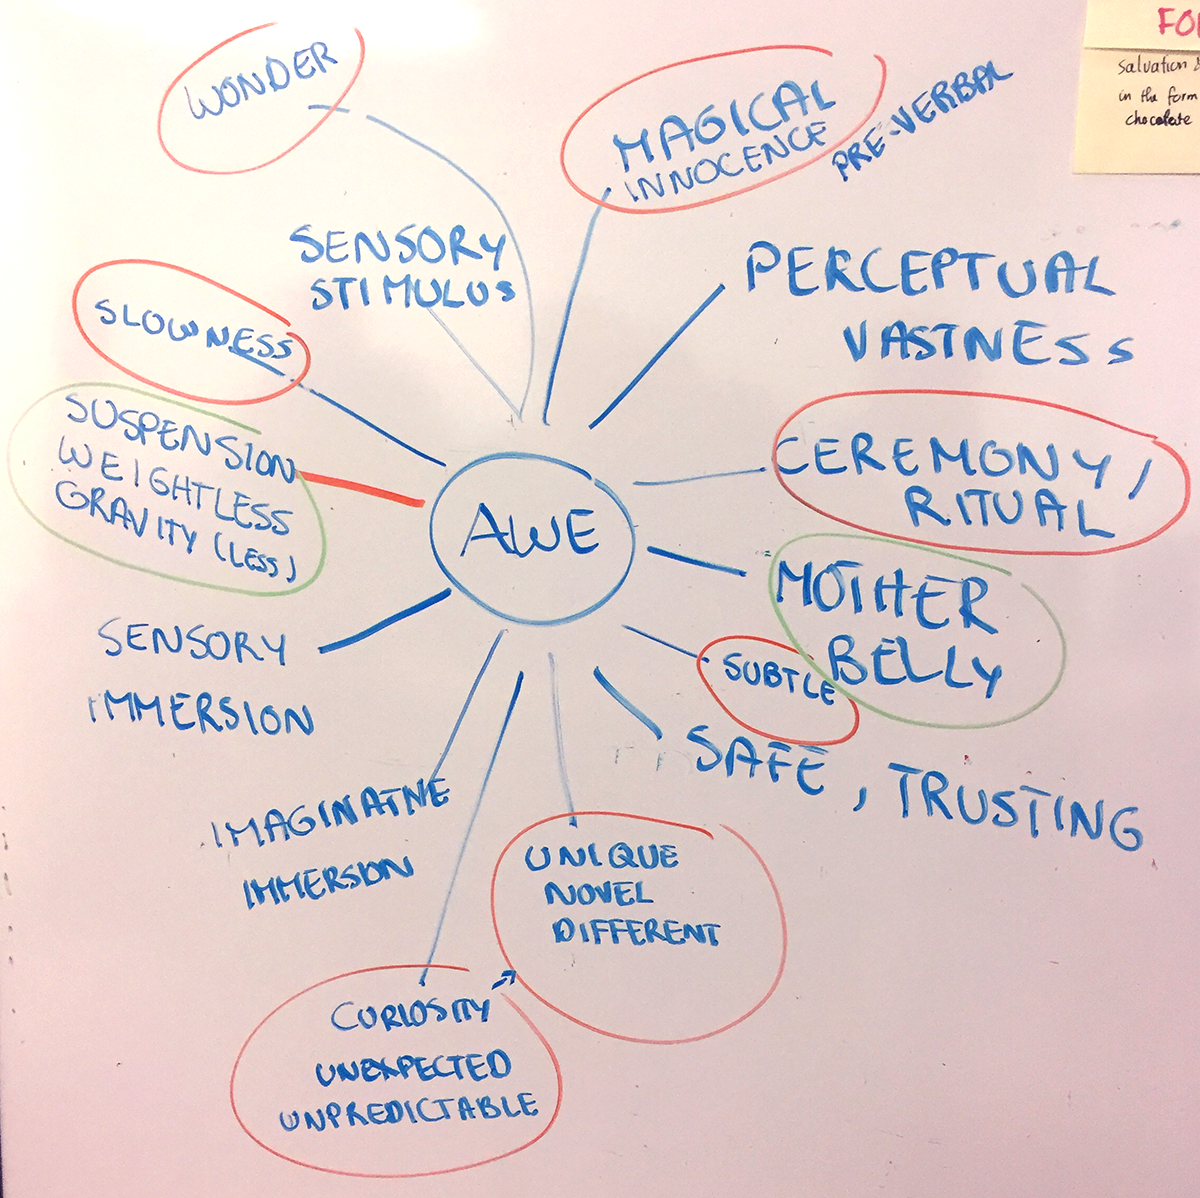 WONDER
MAGICAL
INNOCENCE
PRE-VERBAL
SENSORY
STIMULUS
PERCEPTUAL
VASTNESS
SLOWNESS
SUSPENSION
WEIGHTLESS
GRAVITY (LESS)
CEREMONY /
RITUAL
AWE
MOTHER
BELLY
SUBTLE
SAFE, TRUSTING
SENSORY
IMMERSION
IMAGINATIVE
IMMERSION
UNIQUE
NOVEL
DIFFERENT
CURIOSITY
UNEXPECTED
UNPREDICTABLE
salvation
in the form
chocolate